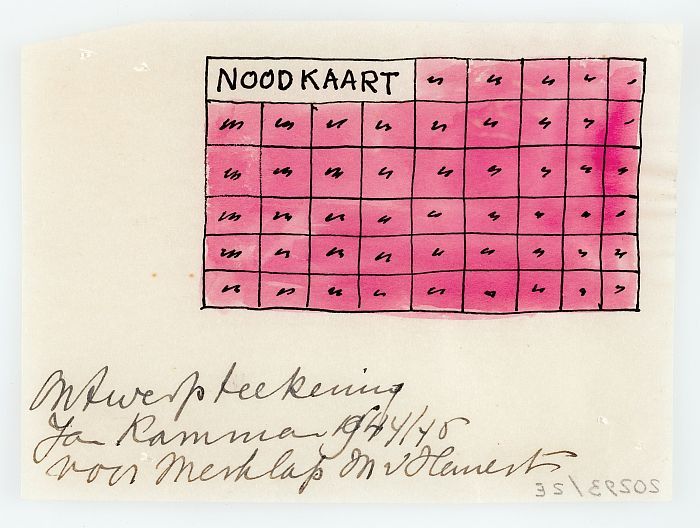 NOODKAART
Ontwerpteekening
Jan Kamman 1944/45
voor Merklap M v Hemert
20293/2E